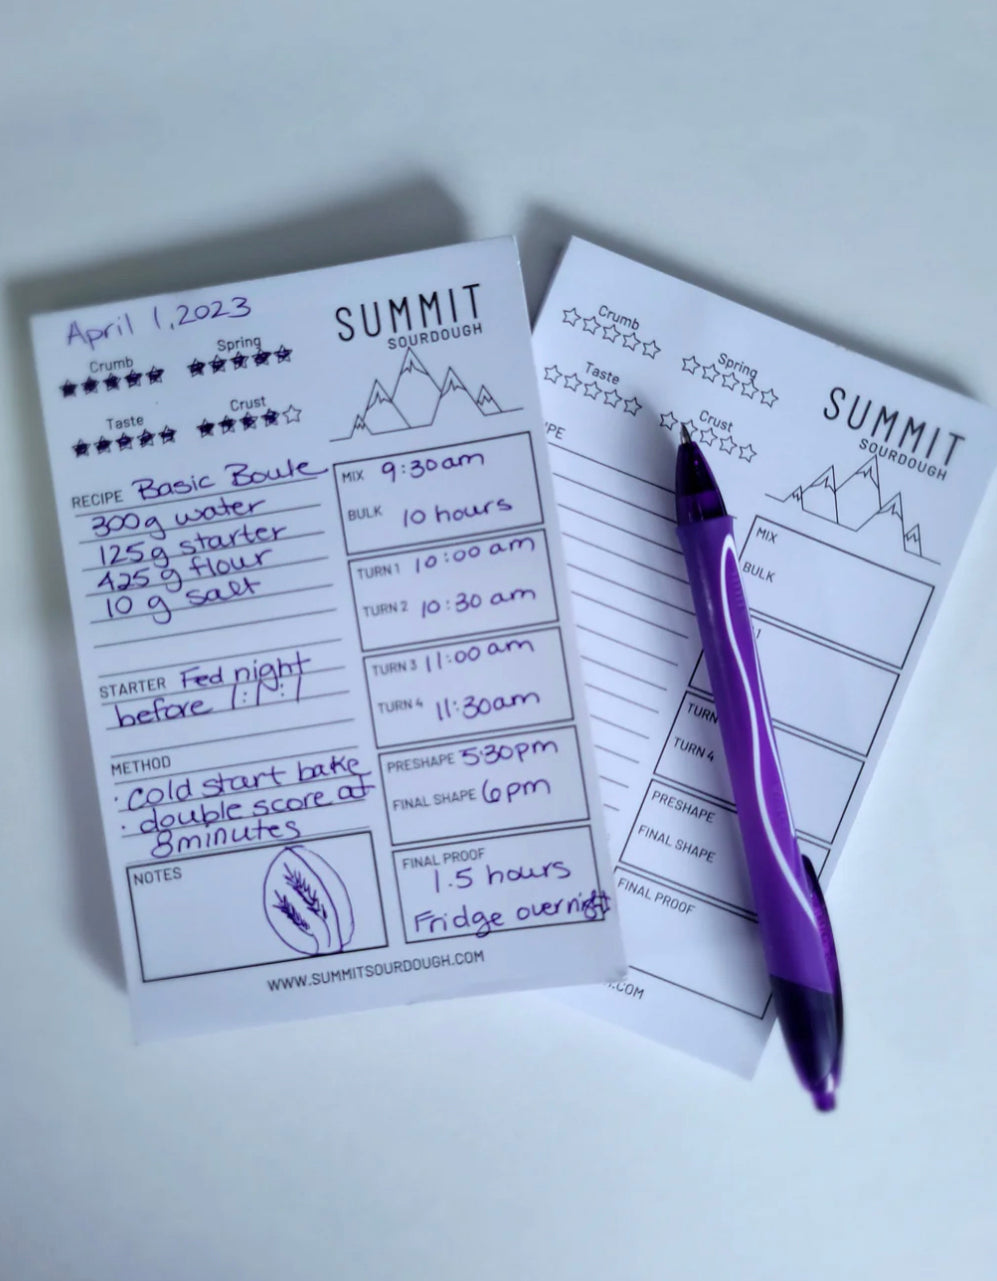 April 1, 2023
SUMMIT
SOURDOUGH
Crumb
Spring
Taste
Crust
RECIPE Basic Boule
300g water
125g starter
425g flour
10g salt
STARTER Fed night
before 1:1:1
METHOD
· Cold start bake
· double score at
8minutes
NOTES
MIX 9:30am
BULK 10 hours
TURN 1 10:00 am
TURN 2 10:30 am
TURN 3 11:00 am
TURN 4 11:30am
PRESHAPE 5:30pm
FINAL SHAPE 6pm
FINAL PROOF
1.5 hours
Fridge overnight
WWW.SUMMITSOURDOUGH.COM
Crumb
Spring
Taste
Crust
SUMMIT
SOURDOUGH
PE
MIX
BULK
1
TURN
TURN 4
PRESHAPE
FINAL SHAPE
FINAL PROOF
.COM